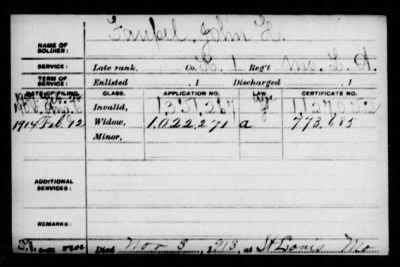 NAME OF SOLDIER: Gaupel, John L.
SERVICE: Late rank, Co. L, 1 Reg't Mo. L. A.
TERM OF SERVICE: Enlisted , 1 Discharged , 1
DATE OF FILING. CLASS. APPLICATION NO. LAW. CERTIFICATE NO.
Invalid,
1914 Feb. 12 Widow, 1,022,271 a 773,685
Minor,
ADDITIONAL SERVICES:
Died Nov 3, 1913, at St Louis Mo